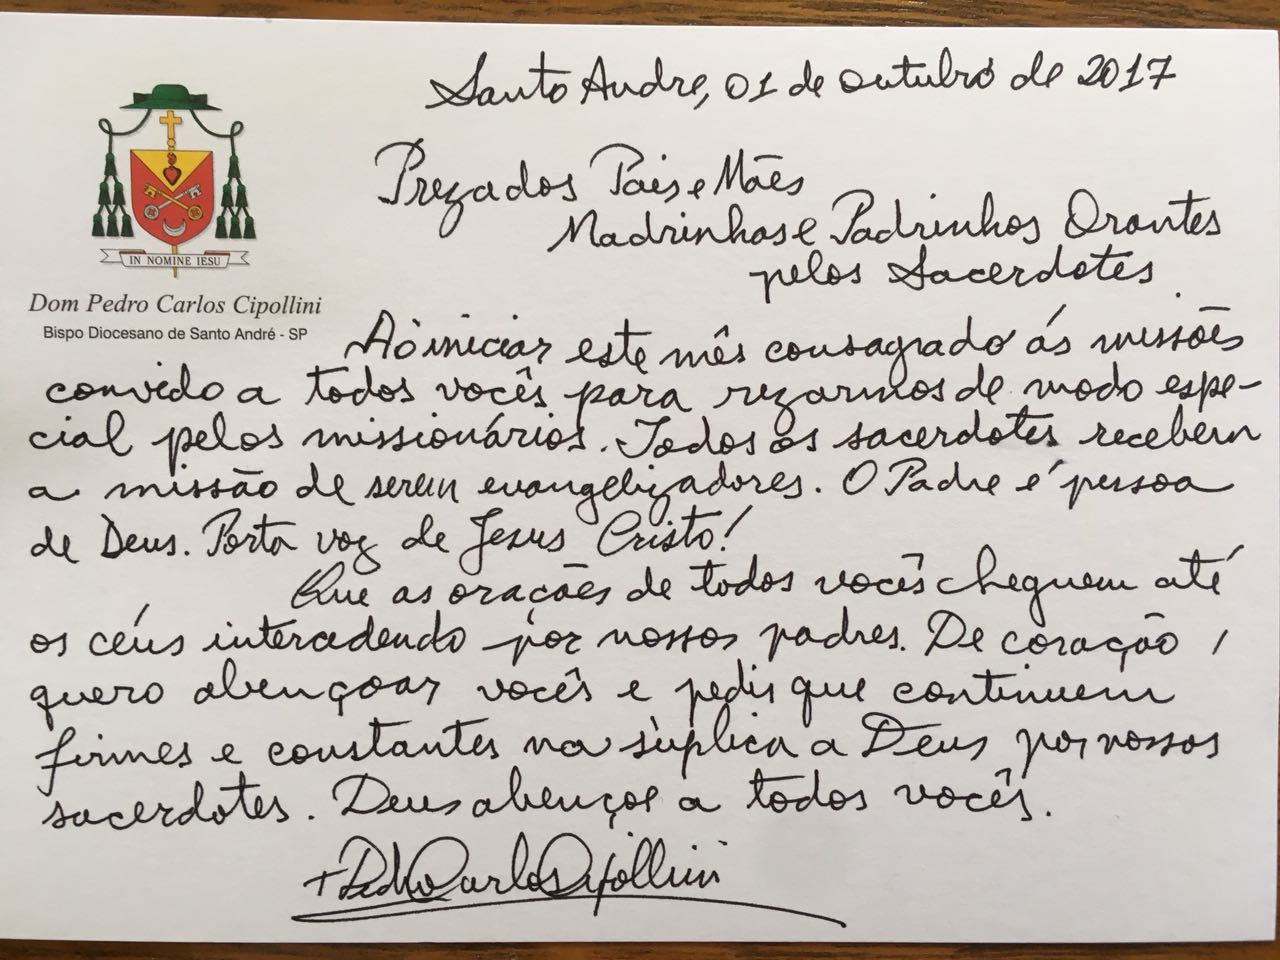 Santo Andre, 01 de outubro de 2017
IN NOMINE IESU
Dom Pedro Carlos Cipollini
Bispo Diocesano de Santo André - SP
Prezados Pais e Mães
Madrinhas e Padrinhos Orantes
pelos Sacerdotes.
Ao iniciar este mês consagrado ás missões
convido a todos vocês para rezarmos de modo espe-
cial pelos missionários. Todos os sacerdotes recebem
a missão de serem evangelizadores. O Padre é pessoa
de Deus. Porta voz de Jesus Cristo!
Que as orações de todos vocês cheguem até
os céus intercedendo por nossos padres. De coração,
quero abençoar vocês e pedir que continuem
firmes e constantes na súplica a Deus por nossos
sacerdotes. Deus abençoe a todos vocês.
+ Pedro Carlos Cipollini